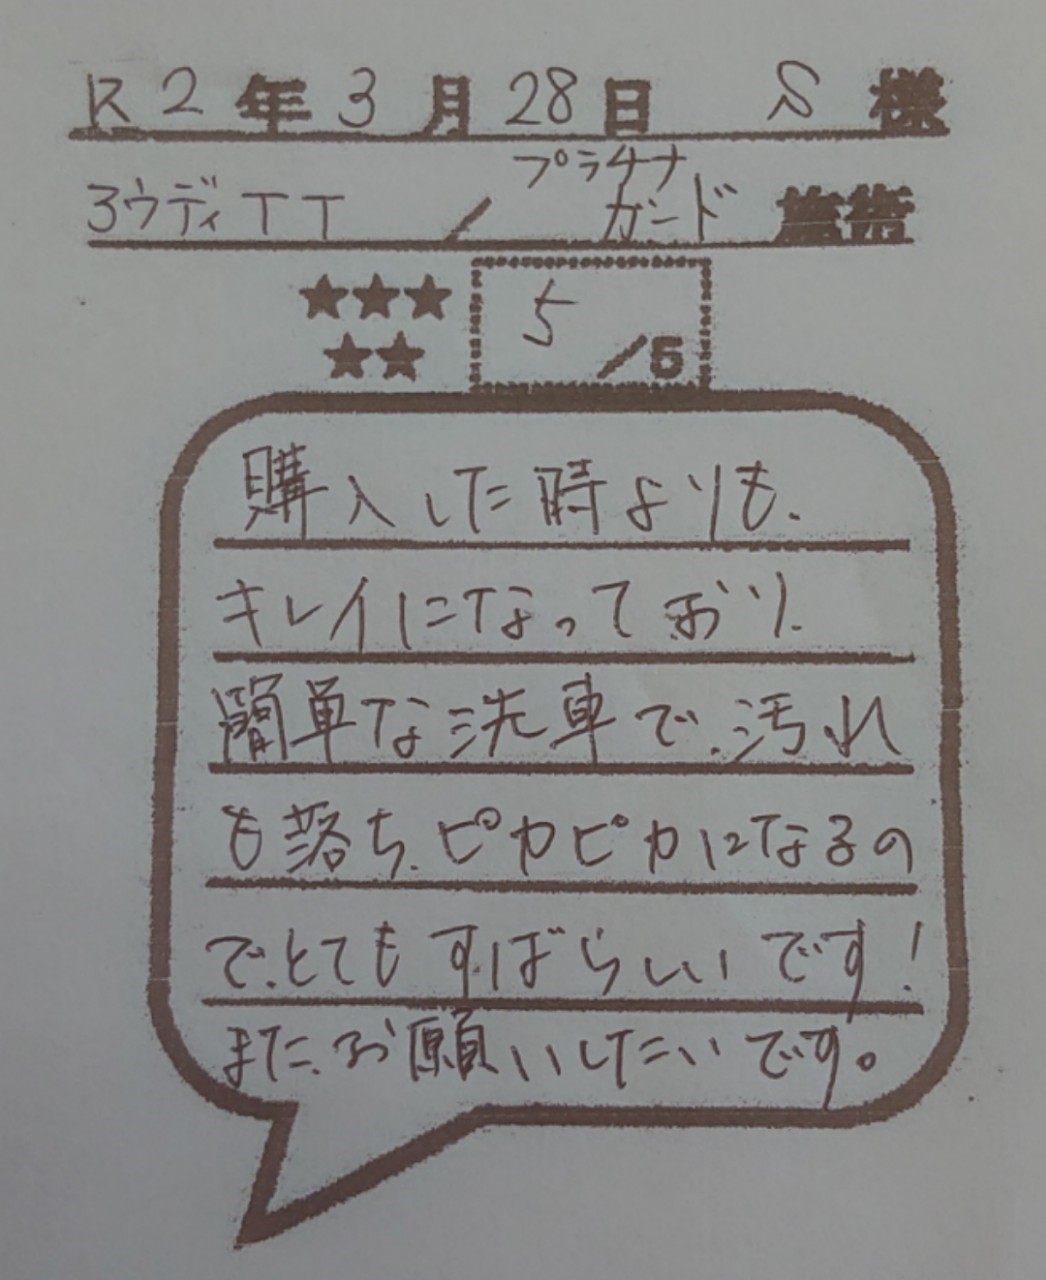 R2年3月28日 S様
アウディTT / プラチナガード 施術
★★★ 5/5
★★
購入した時よりも、
キレイになっており、
簡単な洗車で、汚れ
も落ち、ピカピカになるの
で、とてもすばらしいです!
また、お願いしたいです。